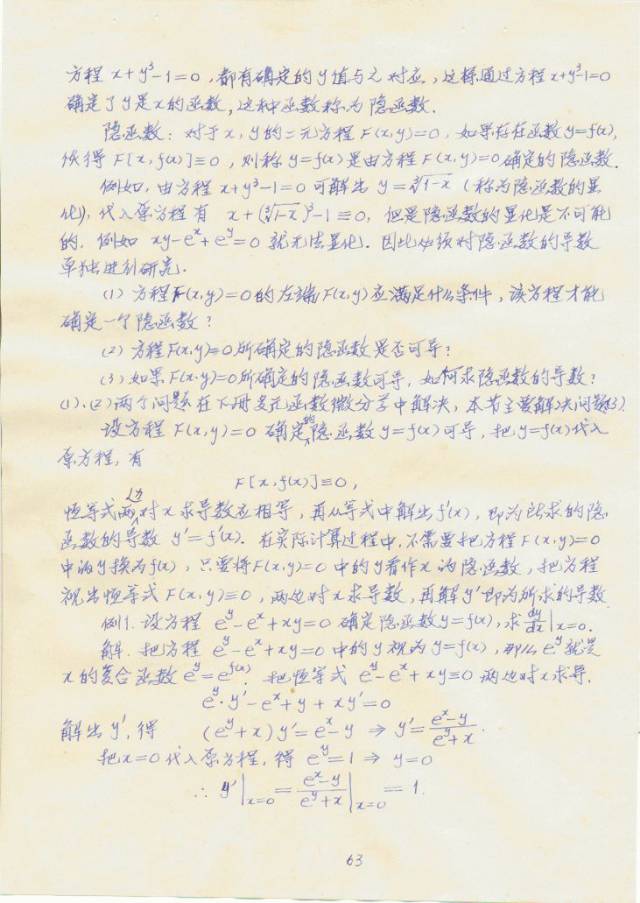 方程 x+y³-1=0，都有确定的y值与之对应，这样通过方程x+y³-1=0
确定了y是x的函数，这种函数称为隐函数．
隐函数：对于x，y的二元方程F(x,y)=0，如果存在函数y=f(x)，
使得F[x,f(x)]≡0，则称y=f(x)是由方程F(x,y)=0确定的隐函数．
例如，由方程x+y³-1=0可解出 y=∛(1-x)（称为隐函数的显
化），代入原方程有 x+(∛(1-x))³-1≡0，但是隐函数的显化是不可能
的．例如 xy-eˣ+eʸ=0 就无法显化．因此必须对隐函数的导数
单独进行研究．
(1) 方程F(x,y)=0的左端F(x,y)应满足什么条件，该方程才能
确定一个隐函数？
(2) 方程F(x,y)=0所确定的隐函数是否可导？
(3) 如果F(x,y)=0所确定的隐函数可导，如何求隐函数的导数？
(1)、(2)两个问题在下册多元函数微分学中解决，本节主要解决问题(3)．
设方程F(x,y)=0 确定的隐函数y=f(x)可导，把y=f(x)代入
原方程，有
F[x,f(x)]≡0，
恒等式两边对x求导数应相等，再从等式中解出f′(x)，即为所求的隐
函数的导数 y′=f′(x)．在实际计算过程中，不需要把方程F(x,y)=0
中的y换为f(x)，只要将F(x,y)=0中的y看作x的隐函数，把方程
视为恒等式F(x,y)≡0，两边对x求导数，再解y′即为所求的导数．
例1．设方程 eʸ-eˣ+xy=0 确定隐函数y=f(x)，求 dy/dx|x=0．
解．把方程 eʸ-eˣ+xy=0中的y视为y=f(x)，那么eʸ就是
x的复合函数eʸ=e^f(x)．把恒等式 eʸ-eˣ+xy≡0 两边对x求导．
eʸ·y′-eˣ+y+xy′=0
解出y′，得 (eʸ+x)y′=eˣ-y ⇒ y′=(eˣ-y)/(eʸ+x)．
把x=0代入原方程，得 eʸ=1 ⇒ y=0
∴ y′|x=0=(eˣ-y)/(eʸ+x)|x=0=1．
63